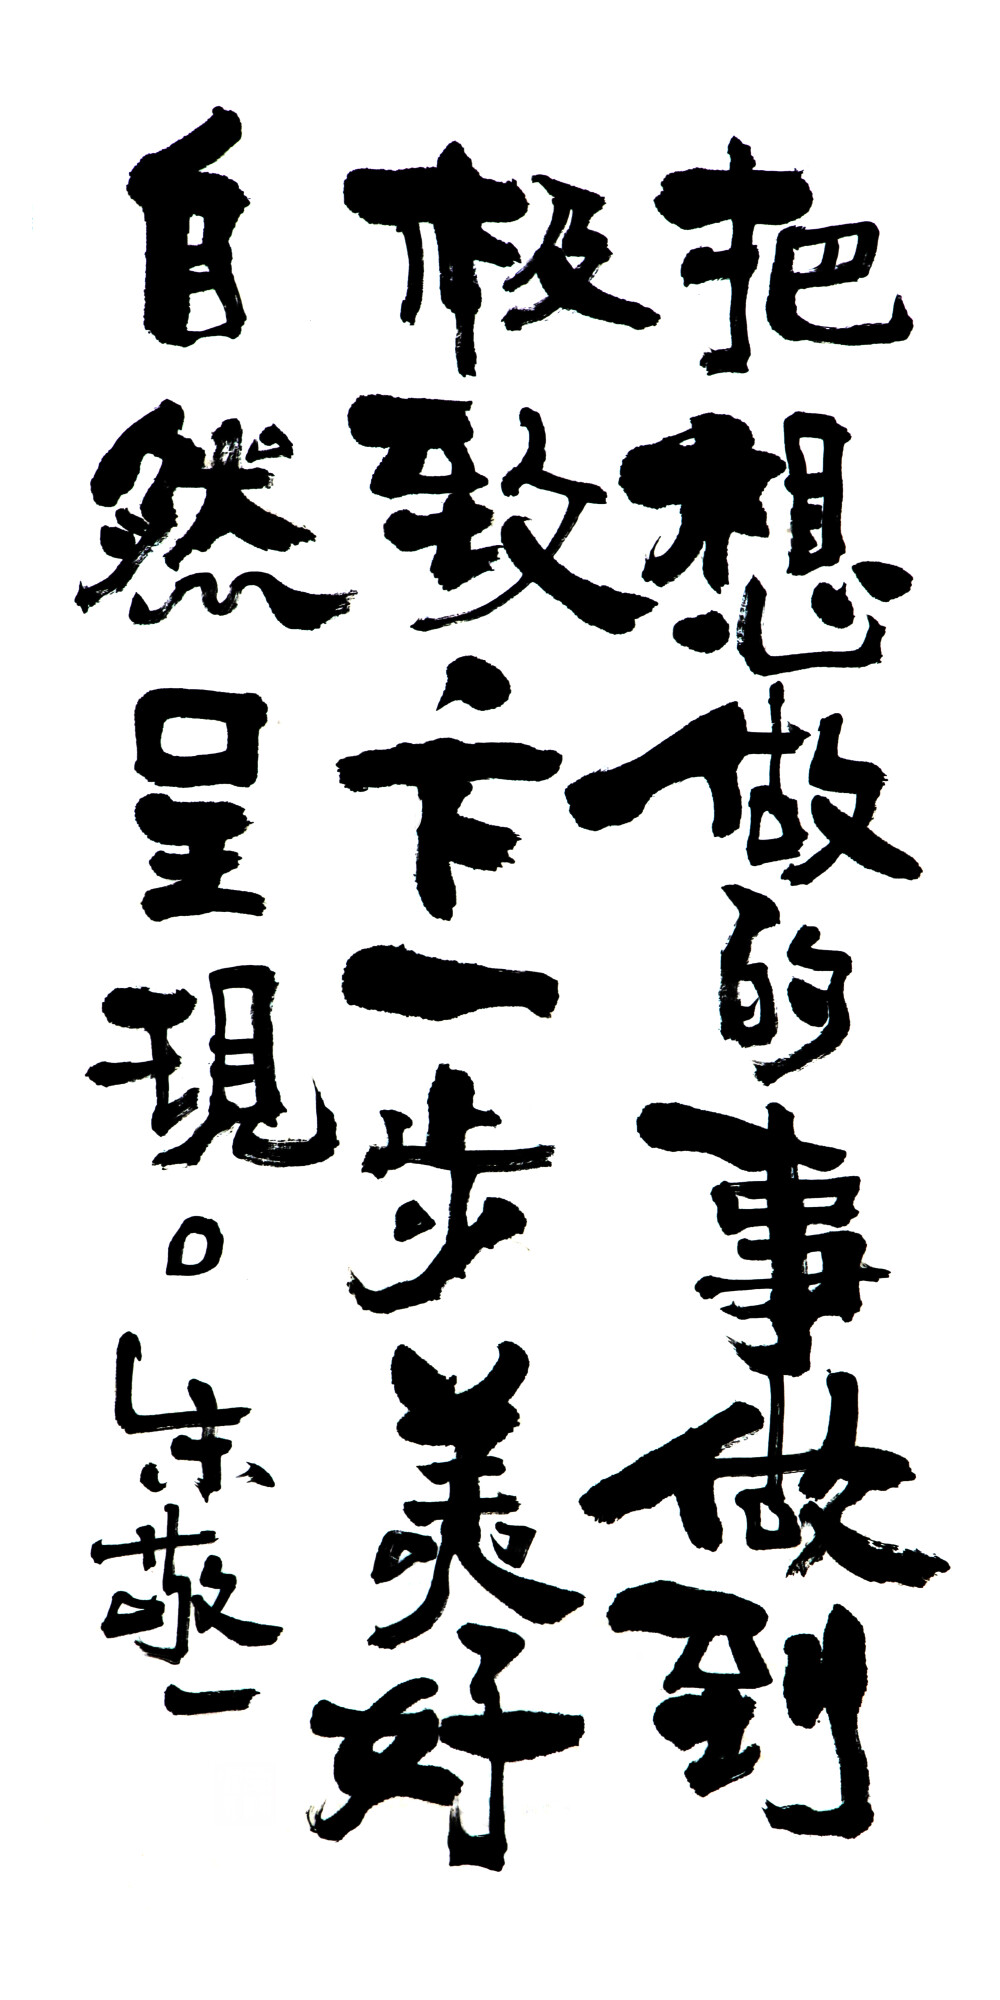 把想做的事做到
极致下一步美好
自然呈現。朱敬一